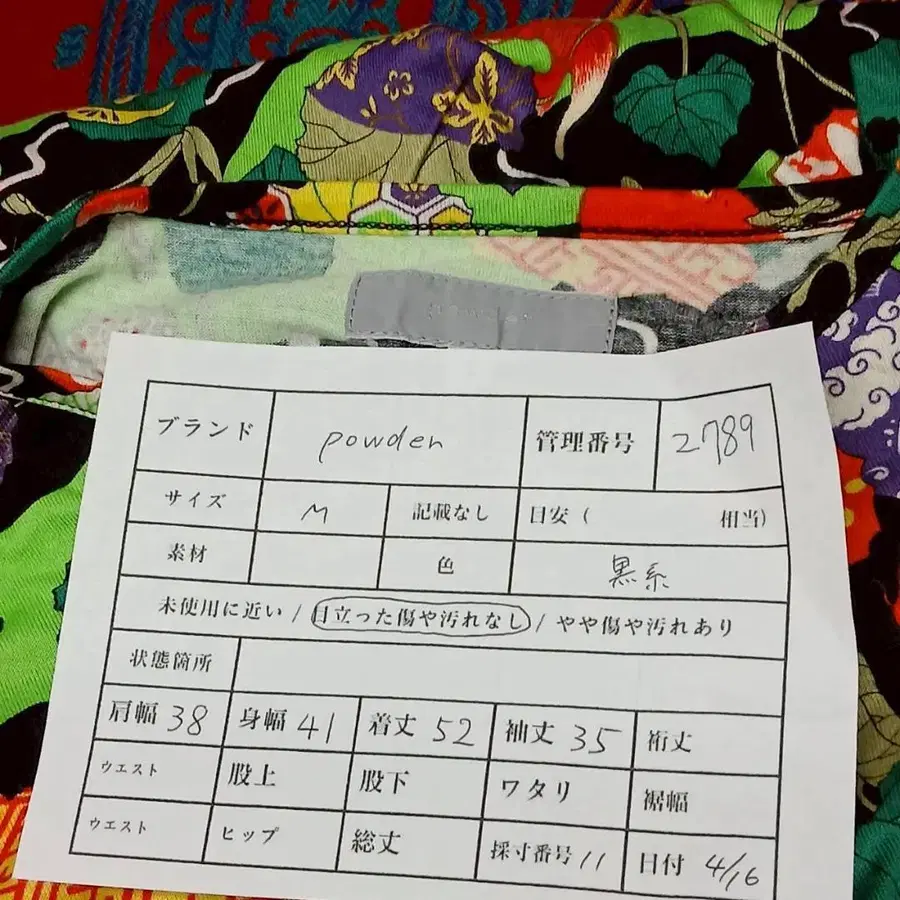 ブランド powder 管理番号 2789
サイズ M 記載なし 目安( 相当)
素材 色 黒系
未使用に近い / 目立った傷や汚れなし / やや傷や汚れあり
状態箇所
肩幅 38 身幅 41 着丈 52 袖丈 35 裄丈
ウエスト 股上 股下 ワタリ 裾幅
ウエスト ヒップ 総丈 採寸番号 11 日付 4/16